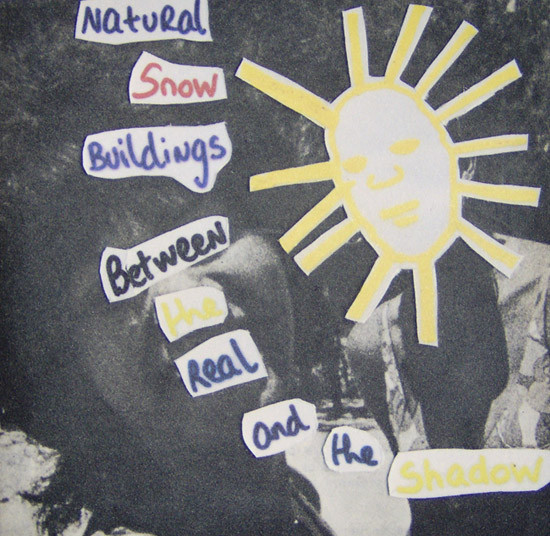 Natural
Snow
Buildings
Between
the
Real
and
the
Shadow